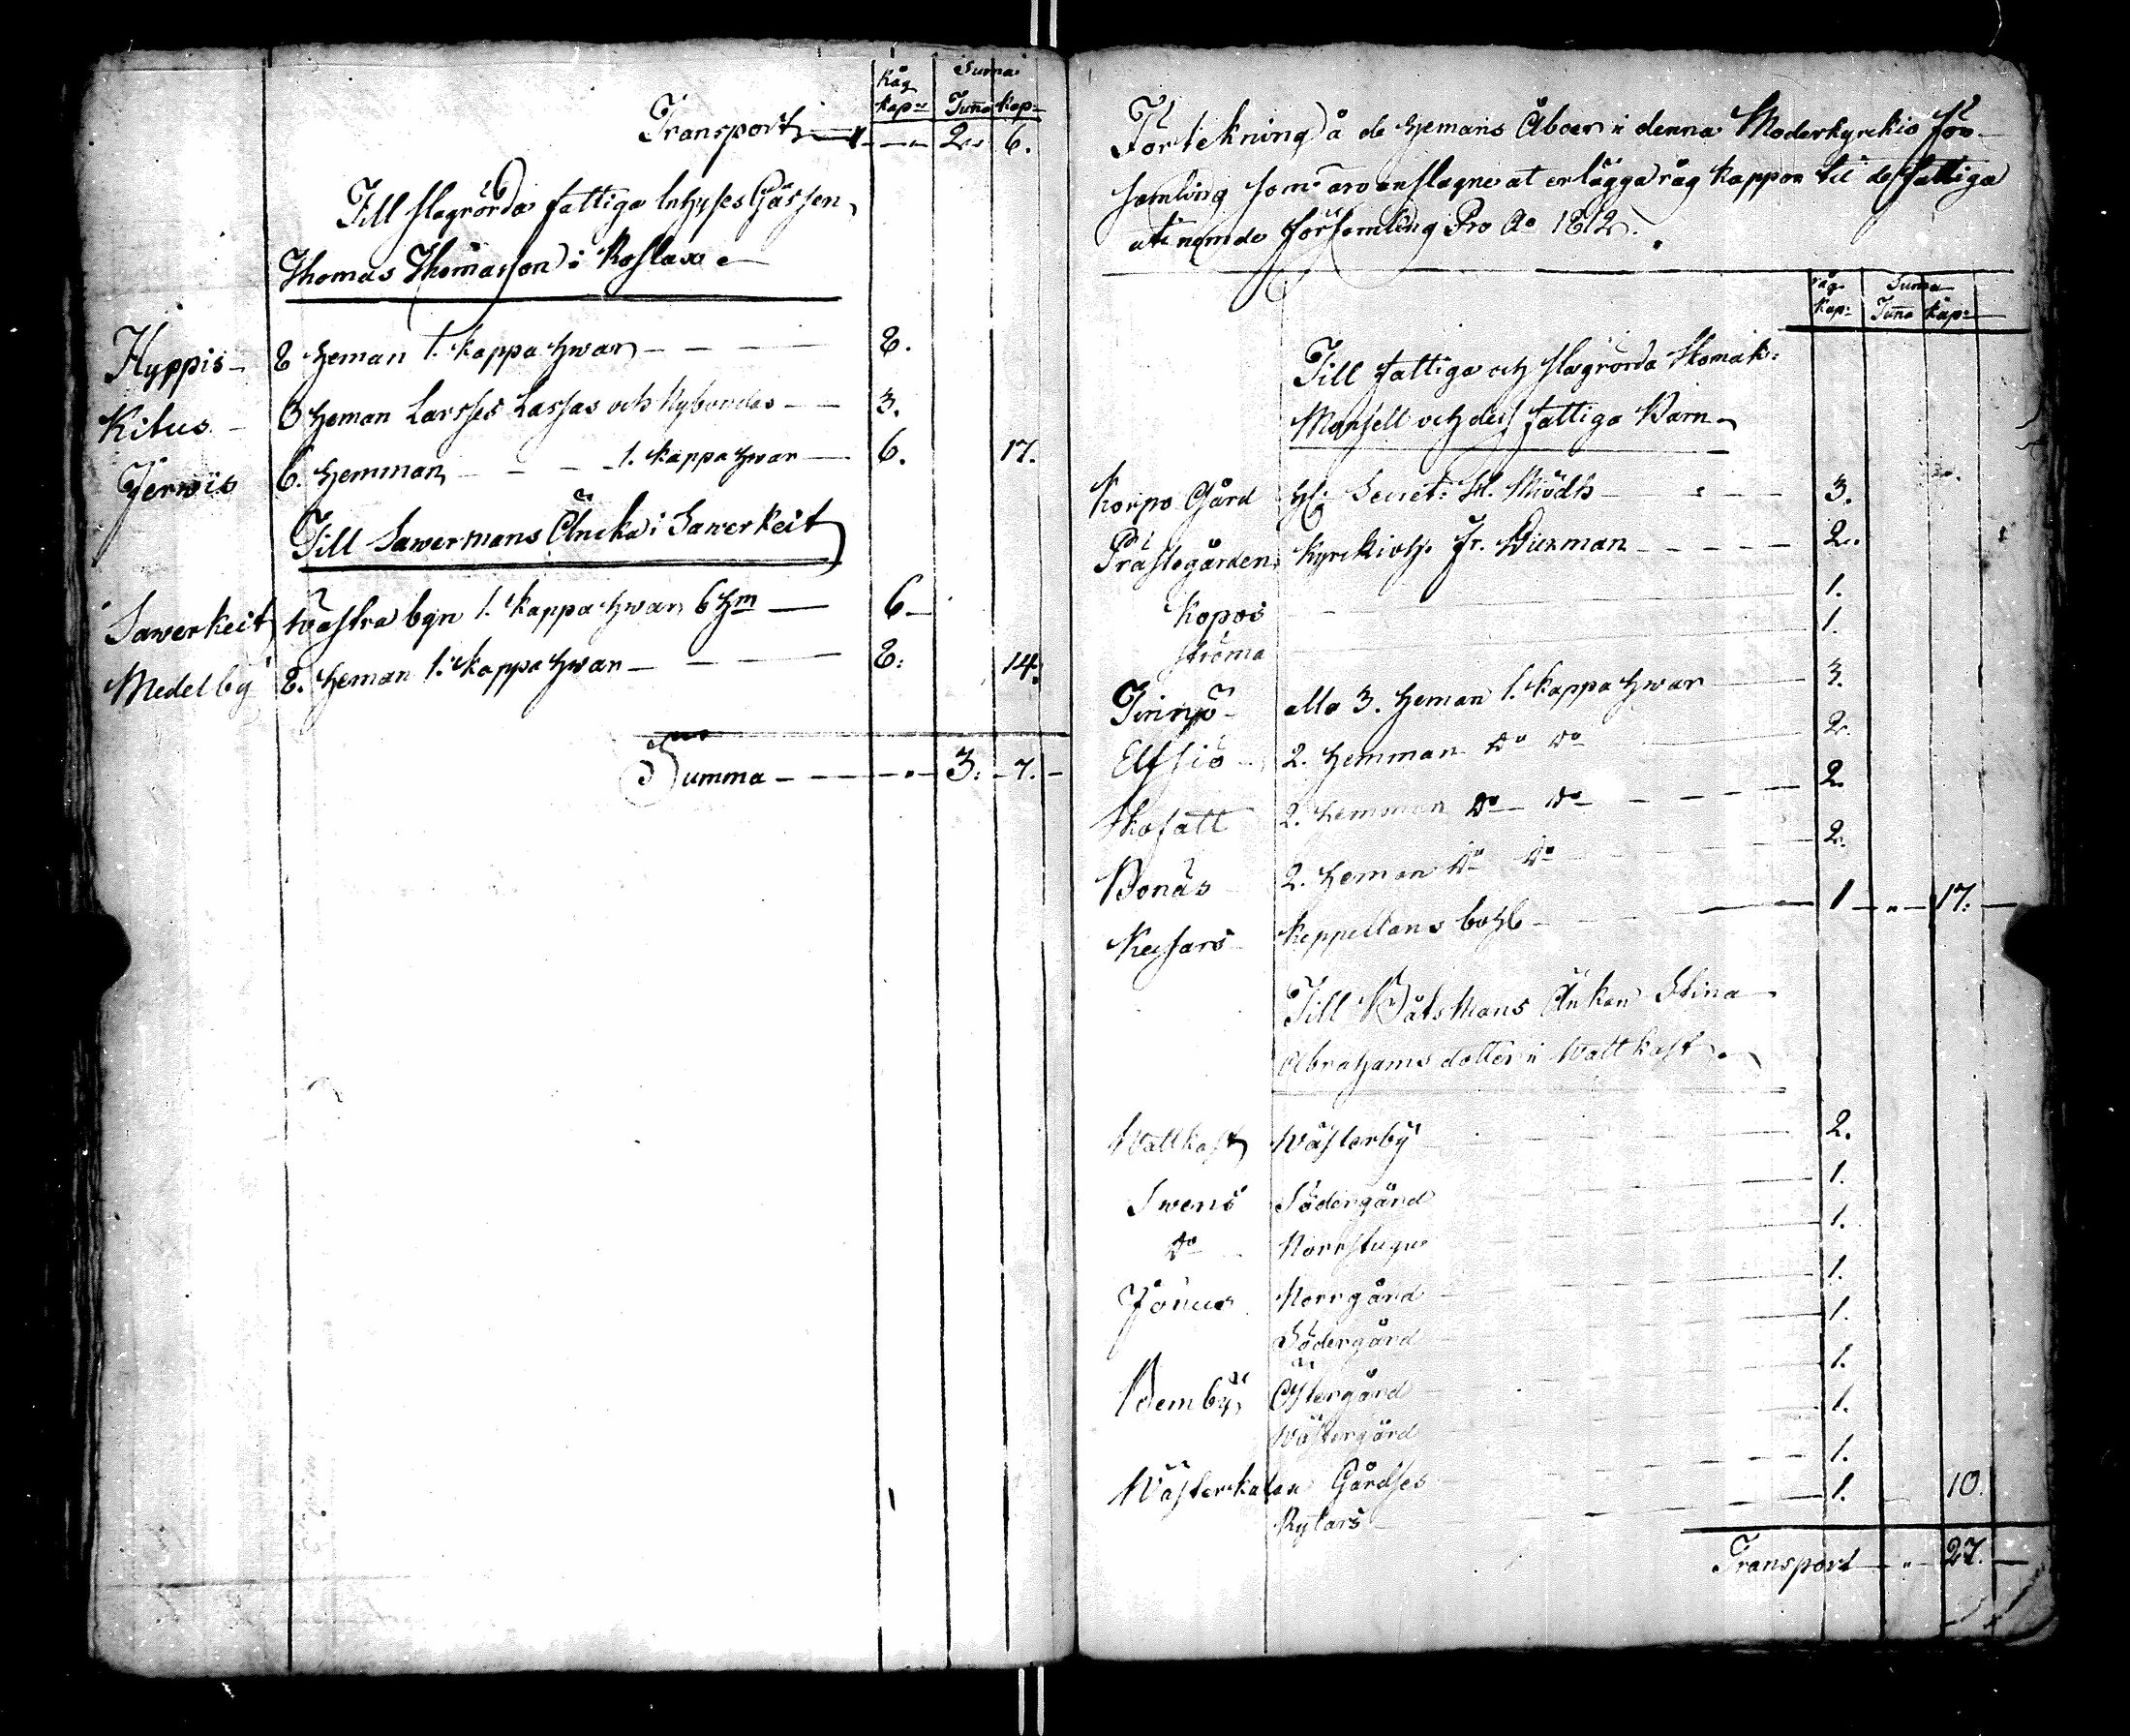 Råg Suma
kapr Tuña kapr
Transport — — 2. 6.
Till slagrörda fattiga Inhyses Gässen
Thomas Thomasson i Roslax
Hyppis 8 Heman 1. kappa hwar 8.
Kitus 3 Heman Larsses Lassas och Nybondas 3.
Jerwis 6. Hemman 1. kappa hwar 6. 17.
Till Sawermans Änka i Sawerkeit
Sawerkeit Wästra byn 1. kappa hwar 6 Hm 6
Medelby 8. Heman 1. kappa hwar 8. 14.
Summa 3. 7.
Förtekning å de Hemans Åboer i denna Moderkyrckio För-
samling som äro anslagne at erlägga råg kappor til de fattiga
uti nämde Församling Pro Ao 1812.
råg Suma
kap: Tuña kapr
Till fattiga och slagrörda Skomak:
Monsell och dess fattiga Barn
Korpo Gård H: Secret: 3.
Prästegården Kyrckioh. Fr. 2.
Kopois 1.
ströma 1.
Finnö alla 3. Heman 1. kappa hwar 3.
Elfsiö 2. Hemman Do Do 2.
Skofatt 2. Hemman Do Do 2.
Bonäs 2. Heman Do Do 2.
Keysars Kappellans bohl 1 17.
Till Båtsmans Änkan Stina
Abrahams dotter i Wattkast
Wattkast Wästerby 2.
Swens Södergård 1.
Do Norrstugu 1.
Jonus Norrgård 1.
Södergård 1.
Bemby Östergård 1.
Wästergård 1.
Wästerkalax Gårdses 1.
Rytars 1. 10.
Transport 27.